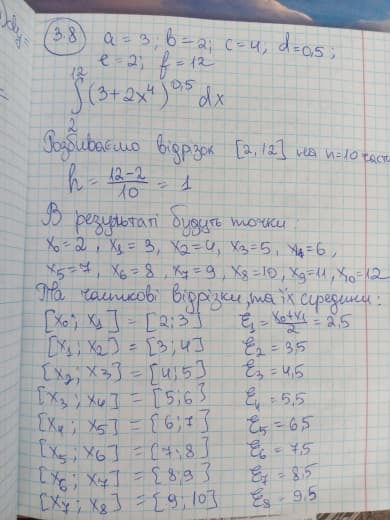 3.8 a = 3; b = 2; c = 4, d = 0,5;
e = 2; f = 12
12
∫ (3 + 2x⁴)^0,5 dx
2
Розбиваємо відрізок [2, 12] на n = 10 части
h = (12-2)/10 = 1
В результаті будуть точки:
x₀ = 2, x₁ = 3, x₂ = 4, x₃ = 5, x₄ = 6,
x₅ = 7, x₆ = 8, x₇ = 9, x₈ = 10, x₉ = 11, x₁₀ = 12
Та часткові відрізки, та їх середини:
[x₀; x₁] = [2; 3] ξ₁ = (x₀+x₁)/2 = 2,5
[x₁; x₂] = [3; 4] ξ₂ = 3,5
[x₂; x₃] = [4; 5] ξ₃ = 4,5
[x₃; x₄] = [5; 6] ξ₄ = 5,5
[x₄; x₅] = [6; 7] ξ₅ = 6,5
[x₅; x₆] = [7; 8] ξ₆ = 7,5
[x₆; x₇] = [8; 9] ξ₇ = 8,5
[x₇; x₈] = [9; 10] ξ₈ = 9,5